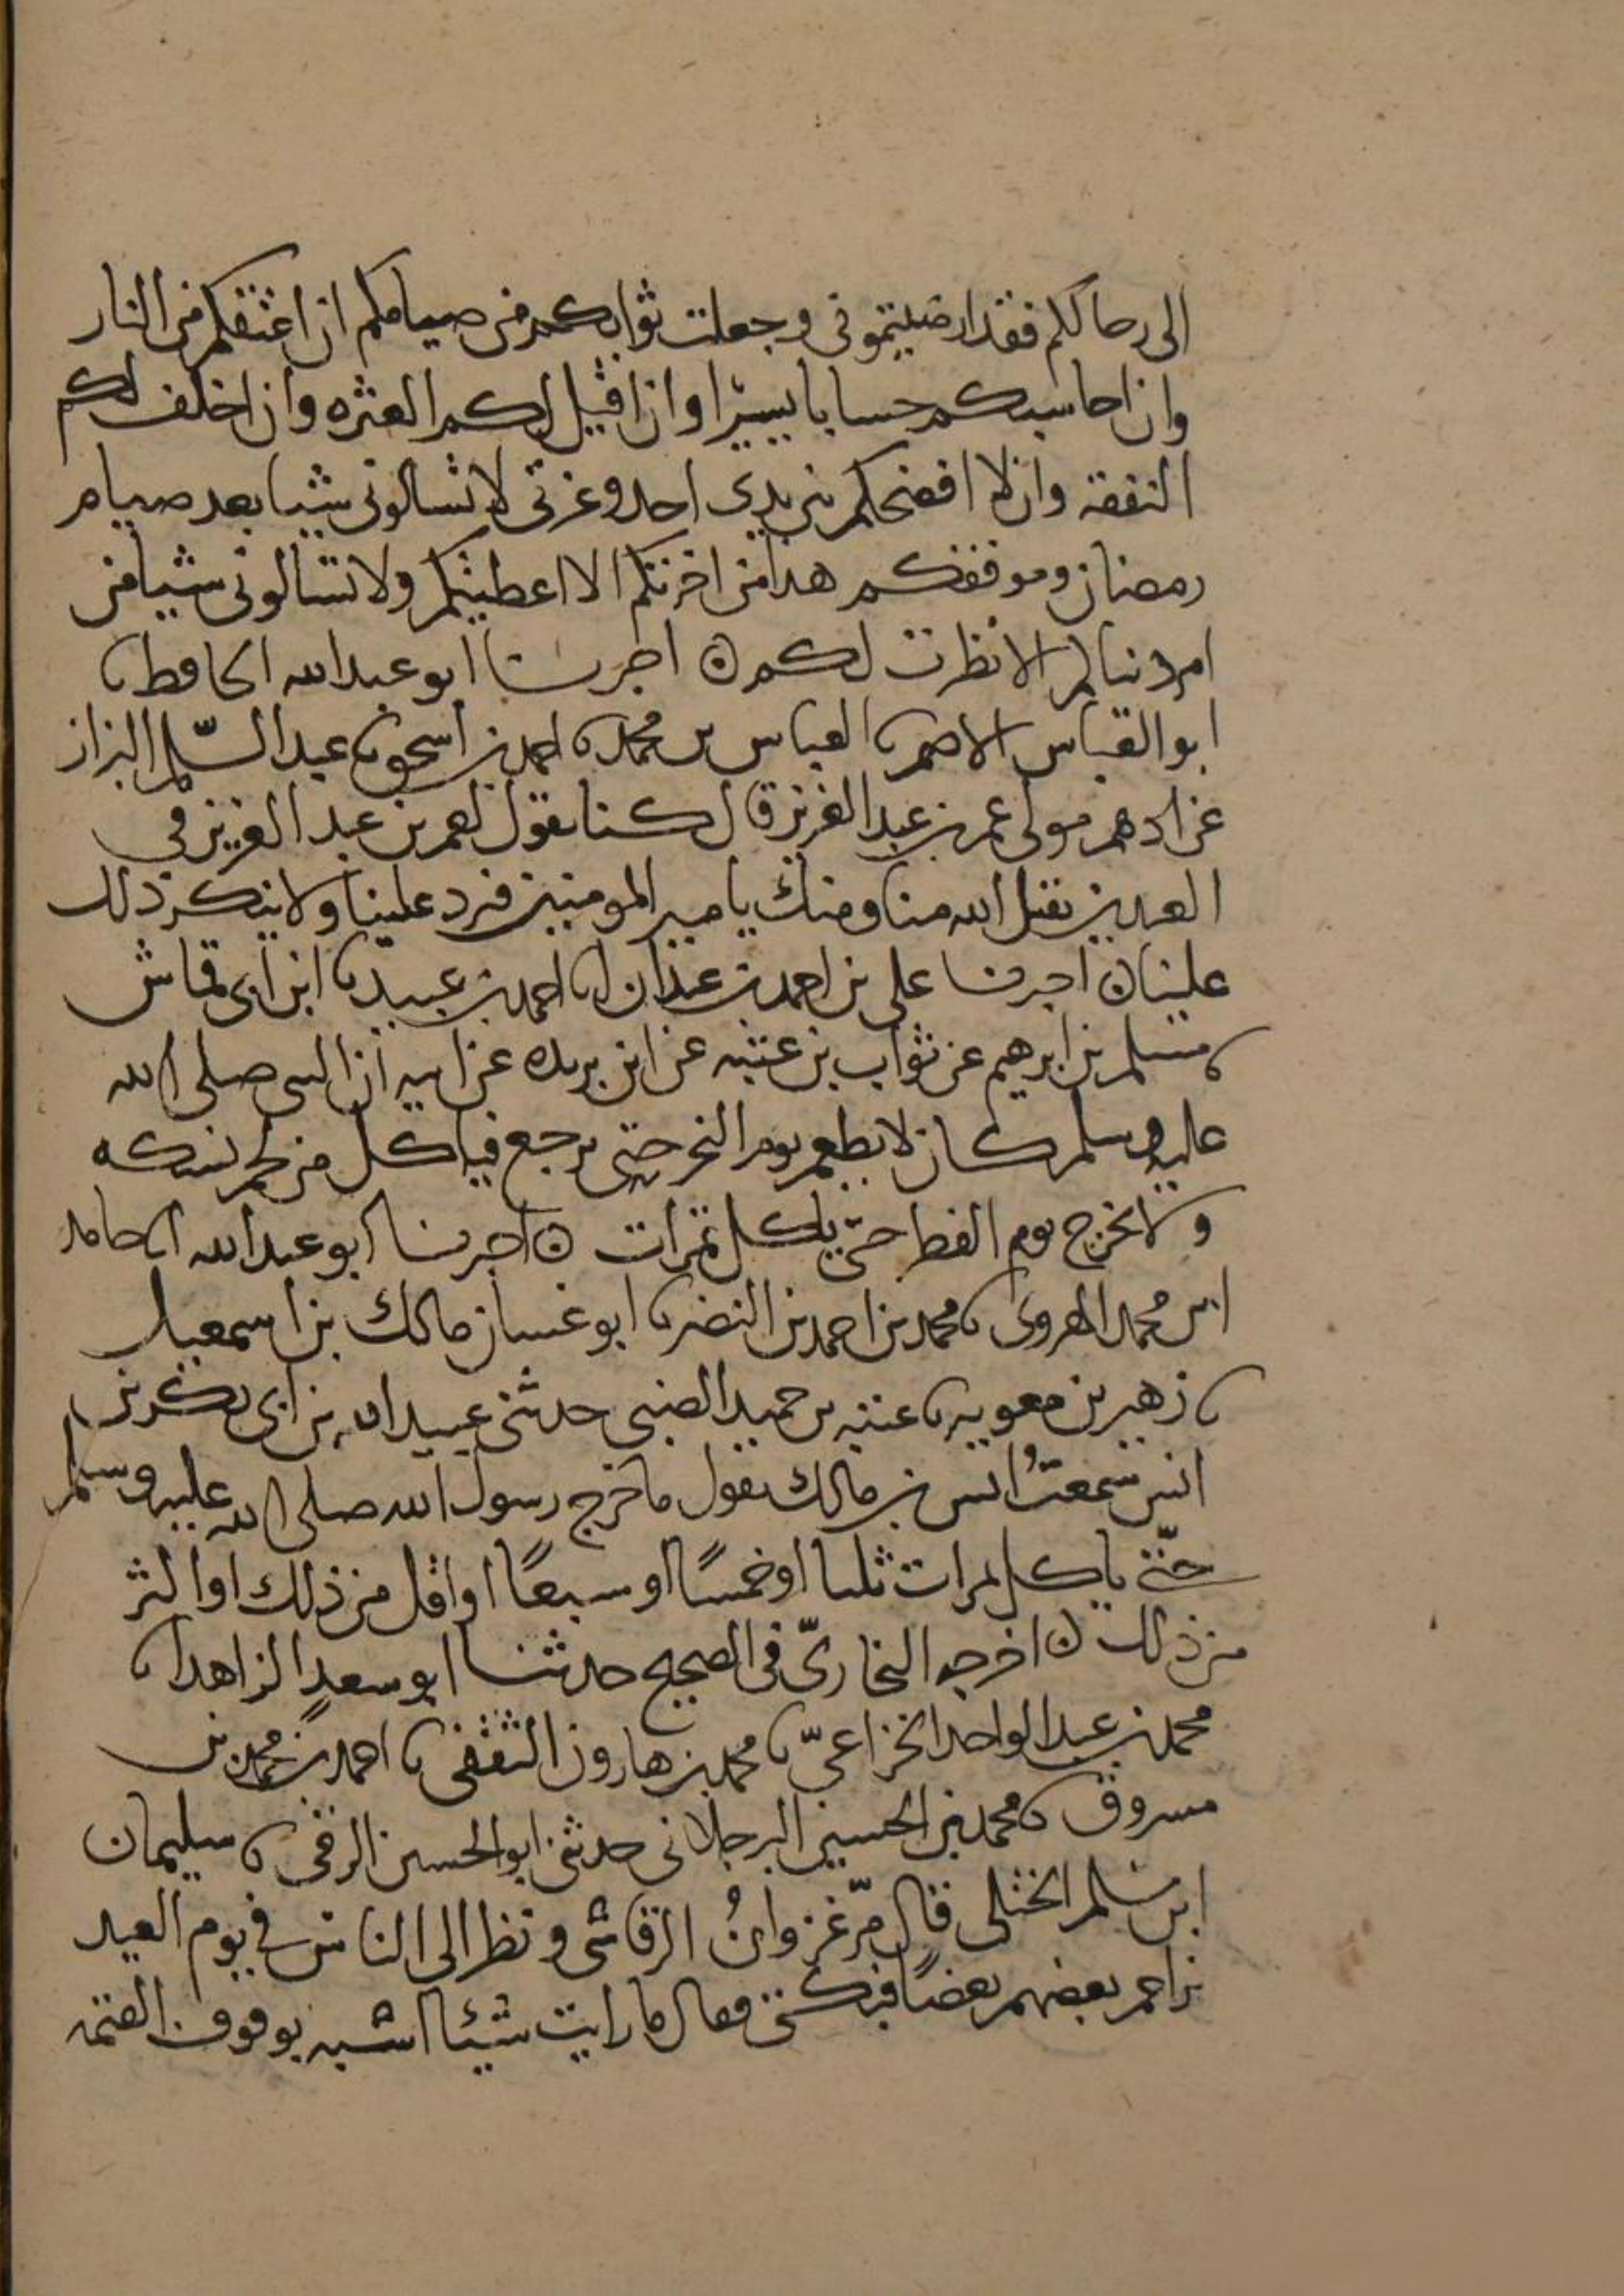 الى رحالكم فقد ارضيتموني وجعلت ثوابكم من صيامكم ان اعتقكم من النار
وان احاسبكم حسابا يسيرا وان اقيل لكم العثره وان اخلف لكم
النفقه وان لا افضحكم بين يدي احد وعزتي لا تسالوني شيا بعد صيام
رمضان وموقفكم هذا من اخرتكم الا اعطيتكم ولا تسالوني شيا من
امر دنياكم الا نظرت لكم ۞ اخبرنا ابو عبد الله الحافظ نا
ابو العباس الاصم نا العباس بن محمد نا احمد بن اسحق نا عبد السلم البزاز
عن ادهم مولى عمر بن عبد العزيز قال كنا نقول لعمر بن عبد العزيز في
العيدين تقبل الله منا ومنك يا امير المومنين فيرد علينا ولا ينكر ذلك
علينا ۞ اخبرنا علي بن احمد بن عبدان انا احمد بن عبيد نا ابن ابي قماش
نا مسلم بن ابرهيم عن ثواب بن عتبه عن ابن بريده عن ابيه ان النبي صلى الله
عليه وسلم كان لا يطعم يوم النحر حتى يرجع فياكل من لحم نسكه
ولا يخرج يوم الفطر حتى ياكل تمرات ۞ اخبرنا ابو عبد الله انا حامد
ابن محمد الهروي نا محمد بن احمد بن النضر نا ابو غسان مالك بن اسمعيل
نا زهير بن معويه نا عتبه بن حميد الضبي حدثني عبيد الله بن ابي بكر بن
انس سمعت انس بن مالك يقول ما خرج رسول الله صلى الله عليه وسلم
حتى ياكل تمرات ثلثا او خمسًا او سبعًا او اقل من ذلك او اكثر
من ذلك ۞ اخرجه البخاريّ في الصحيح حدثنا ابو سعد الزاهد انا
محمد بن عبد الواحد الخزاعيّ نا محمد بن هارون الثقفي نا احمد بن محمد بن
مسروق نا محمد بن الحسين البرجلاني حدثني ابو الحسين الرقي نا سليمان
ابن سلم الختلي قال مرّ غزوانُ الرقاشي ونظر الى الناس في يوم العيد
يزاحم بعضهم بعضًا فبكى وقال ما رايت شيئا اشبه بوقوف القيمه